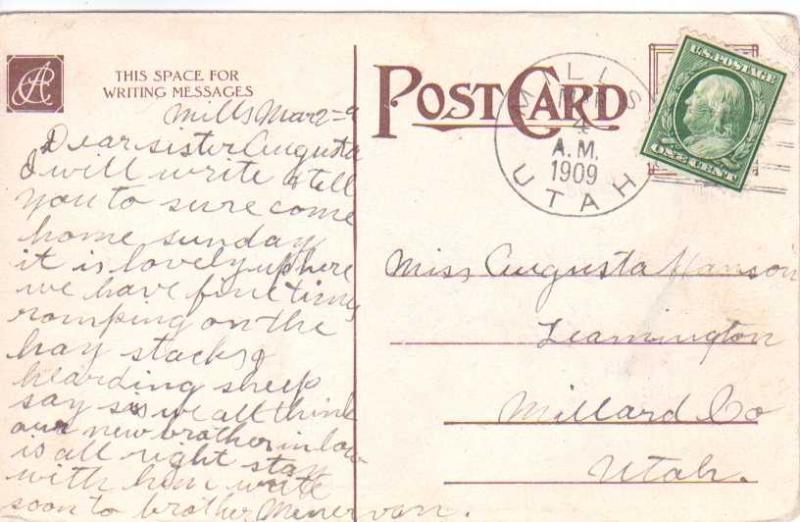 THIS SPACE FOR
WRITING MESSAGES
POST CARD
MILLS
4
A.M.
1909
UTAH
U.S. POSTAGE
ONE CENT
Mills Mar 2-9
Dear sister Augusta
I will write & tell
you to sure come
home sunday
it is lovely up here
we have fine times
romping on the
hay stacks &
hearding sheep
say sis we all think
our new brother in law
is all right stay
with him write
soon to brother Menervan.
Miss Augusta Hanson
Leamington
Millard Co
Utah.